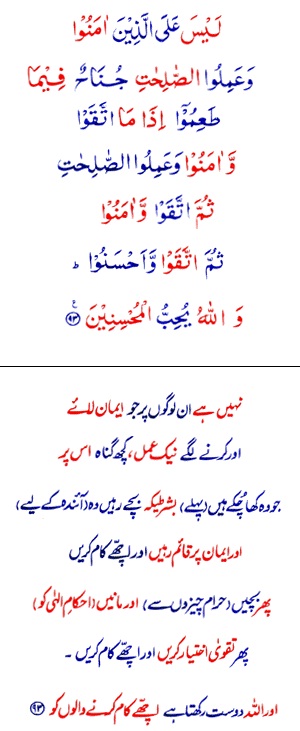 لَيْسَ عَلَى الَّذِيْنَ اٰمَنُوْا
وَعَمِلُوا الصّٰلِحٰتِ جُنَاحٌ فِيْمَا
طَعِمُوْۤا اِذَا مَا اتَّقَوْا
وَّاٰمَنُوْا وَعَمِلُوا الصّٰلِحٰتِ
ثُمَّ اتَّقَوْا وَّاٰمَنُوْا
ثُمَّ اتَّقَوْا وَّاَحْسَنُوْا ؕ
وَ اللّٰهُ يُحِبُّ الْمُحْسِنِيْنَ ﴿۹۳﴾ ع
نہیں ہے ان لوگوں پر جو ایمان لائے
اور کرنے لگے نیک عمل، کچھ گناہ اس پر
جو وہ کھا چُکے ہیں (پہلے) بشرطیکہ بچے رہیں وہ (آئندہ کے لیے)
اور ایمان پر قائم رہیں اور اچھّے کام کریں
پھر بچیں (حرام چیزوں سے) اور مانیں (احکامِ الہٰی کو)
پھر تقویٰ اختیار کریں اور اچھّے کام کریں ۔
اور اللہ دوست رکھتا ہے اچھّے کام کرنے والوں کو ﴿۹۳﴾